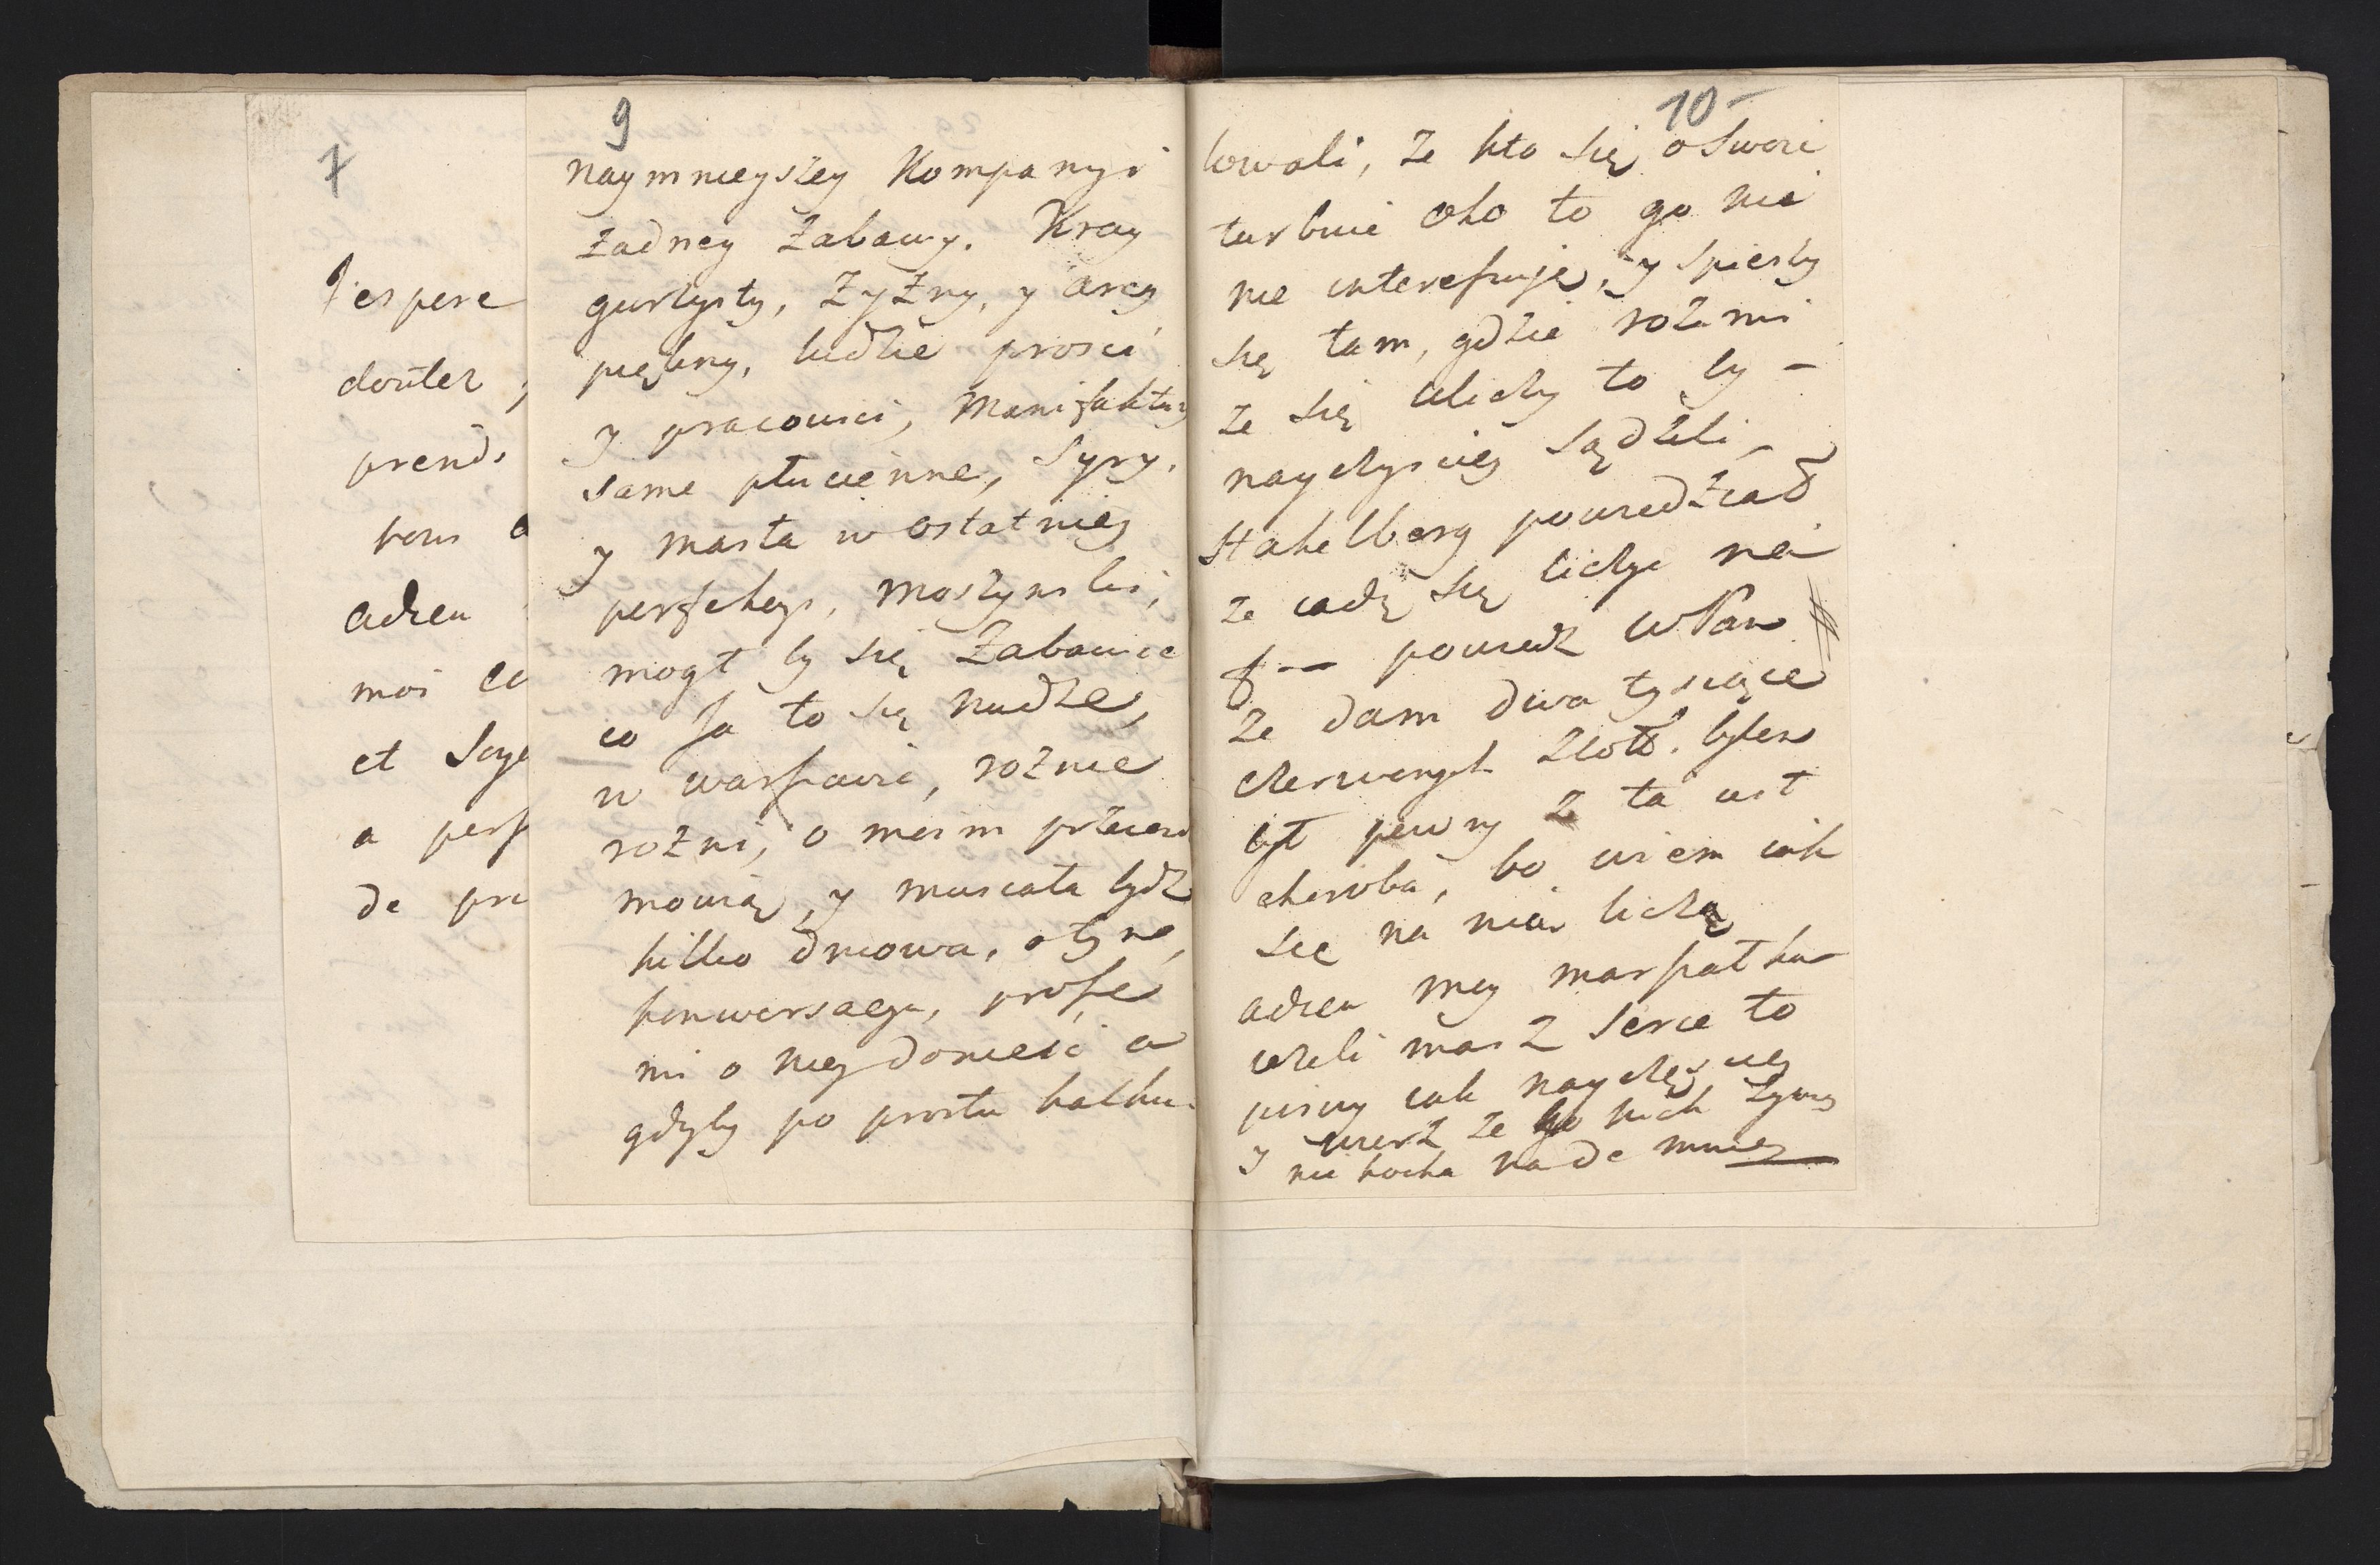 7
J'espere
douter
prends
vous
adieu
moi
et Soye
a
de
9
naymnieyszey Kompanyi
żadney zabawy. Kray
gurzysty, żyżny, y arcy
piękny, ludzie prosci
y pracowici, Manifaktury
same płucienne, Syry,
y masła w ostatniey
perfekcyi, Moszynski,
mogł by się zabawic
co Ja to się nudze,
w warszawie, roznie
rozni, o moim
mowią, y musiała bydz
kilko dniowa, o tyne,
konwersacyi, prosze
mi o niey doniesc a
gdyby po prostu kalku-
10
lowali, ze kto się oswoi
turbuie oko to go nie
nie interessuje, y spieszy
się tam, gdzie
ze się to by -
nayczysciey sądzili,
Stakelberg powiedział
ze iadę się liczyc na
powiedz WPan
ze dam dwa tysiące
czerwonych złott. bylem
był pewny z ta iest
choroba, bo wiem iak
się na nia liczą
adieu mey
iezeli masz serce to
pisuy iak nayczęsciey
y wierz ze nikt żywy
nie kocha nade mnie